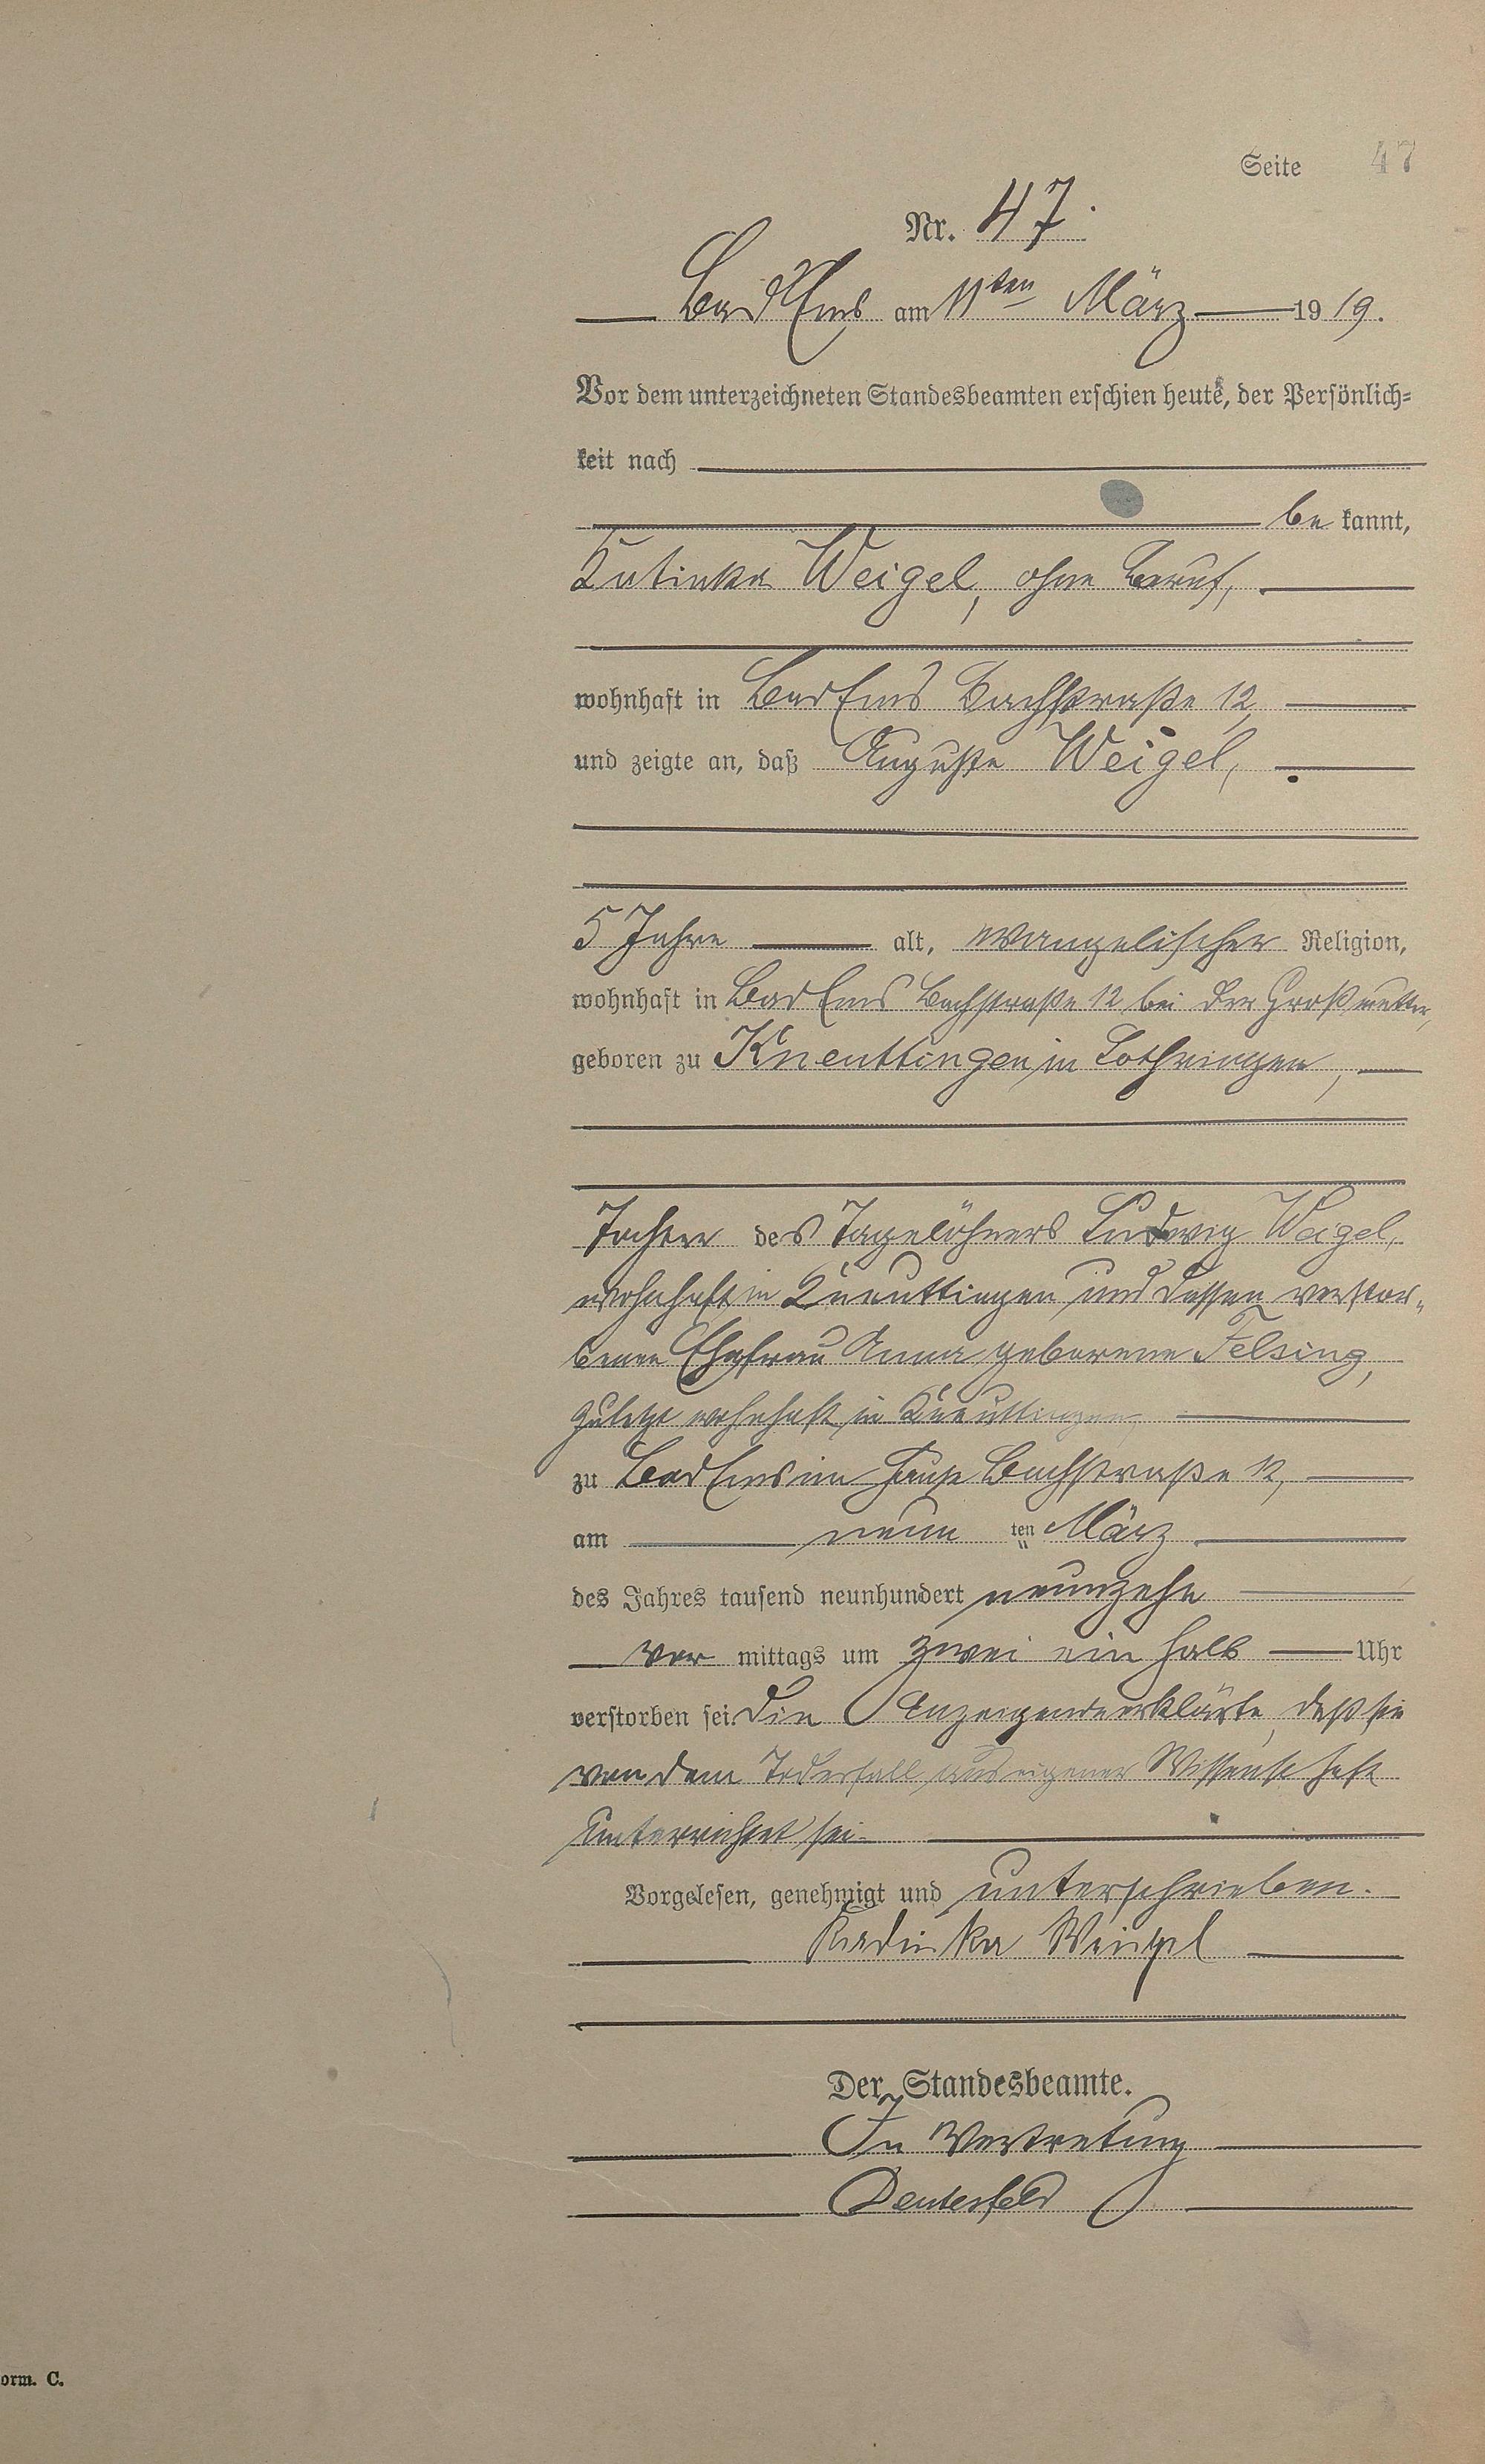 Seite 47
Nr. 47.
Bad Ems am 11ten März 1919.
Vor dem unterzeichneten Standesbeamten erschien heute, der Persönlich-
keit nach
be kannt,
Katinka Weigel, ohne Beruf,
wohnhaft in Bad Ems Bachstraße 12,
und zeigte an, daß Auguste Weigel,
5 Jahre alt, evangelischer Religion,
wohnhaft in Bad Ems Bachstraße 12 bei der Großmutter,
geboren zu Kneuttingen in Lothringen,
Tochter des Tagelöhners Ludwig Weigel,
wohnhaft in Kneuttingen und dessen verstor-
benen Ehefrau Anna geborene Felsing,
zuletzt wohnhaft in Kneuttingen,
zu Bad Ems im Hause Bachstraße 12,
am neun ten März
des Jahres tausend neunhundert neunzehn
vor mittags um zwei ein halb Uhr
verstorben sei. Die Anzeigende erklärte, daß sie
von dem Todesfall aus eigener Wissenschaft
unterrichtet sei.
Vorgelesen, genehmigt und unterschrieben.
Kadinka Weigel
Der Standesbeamte.
In Vertretung
orm. C.